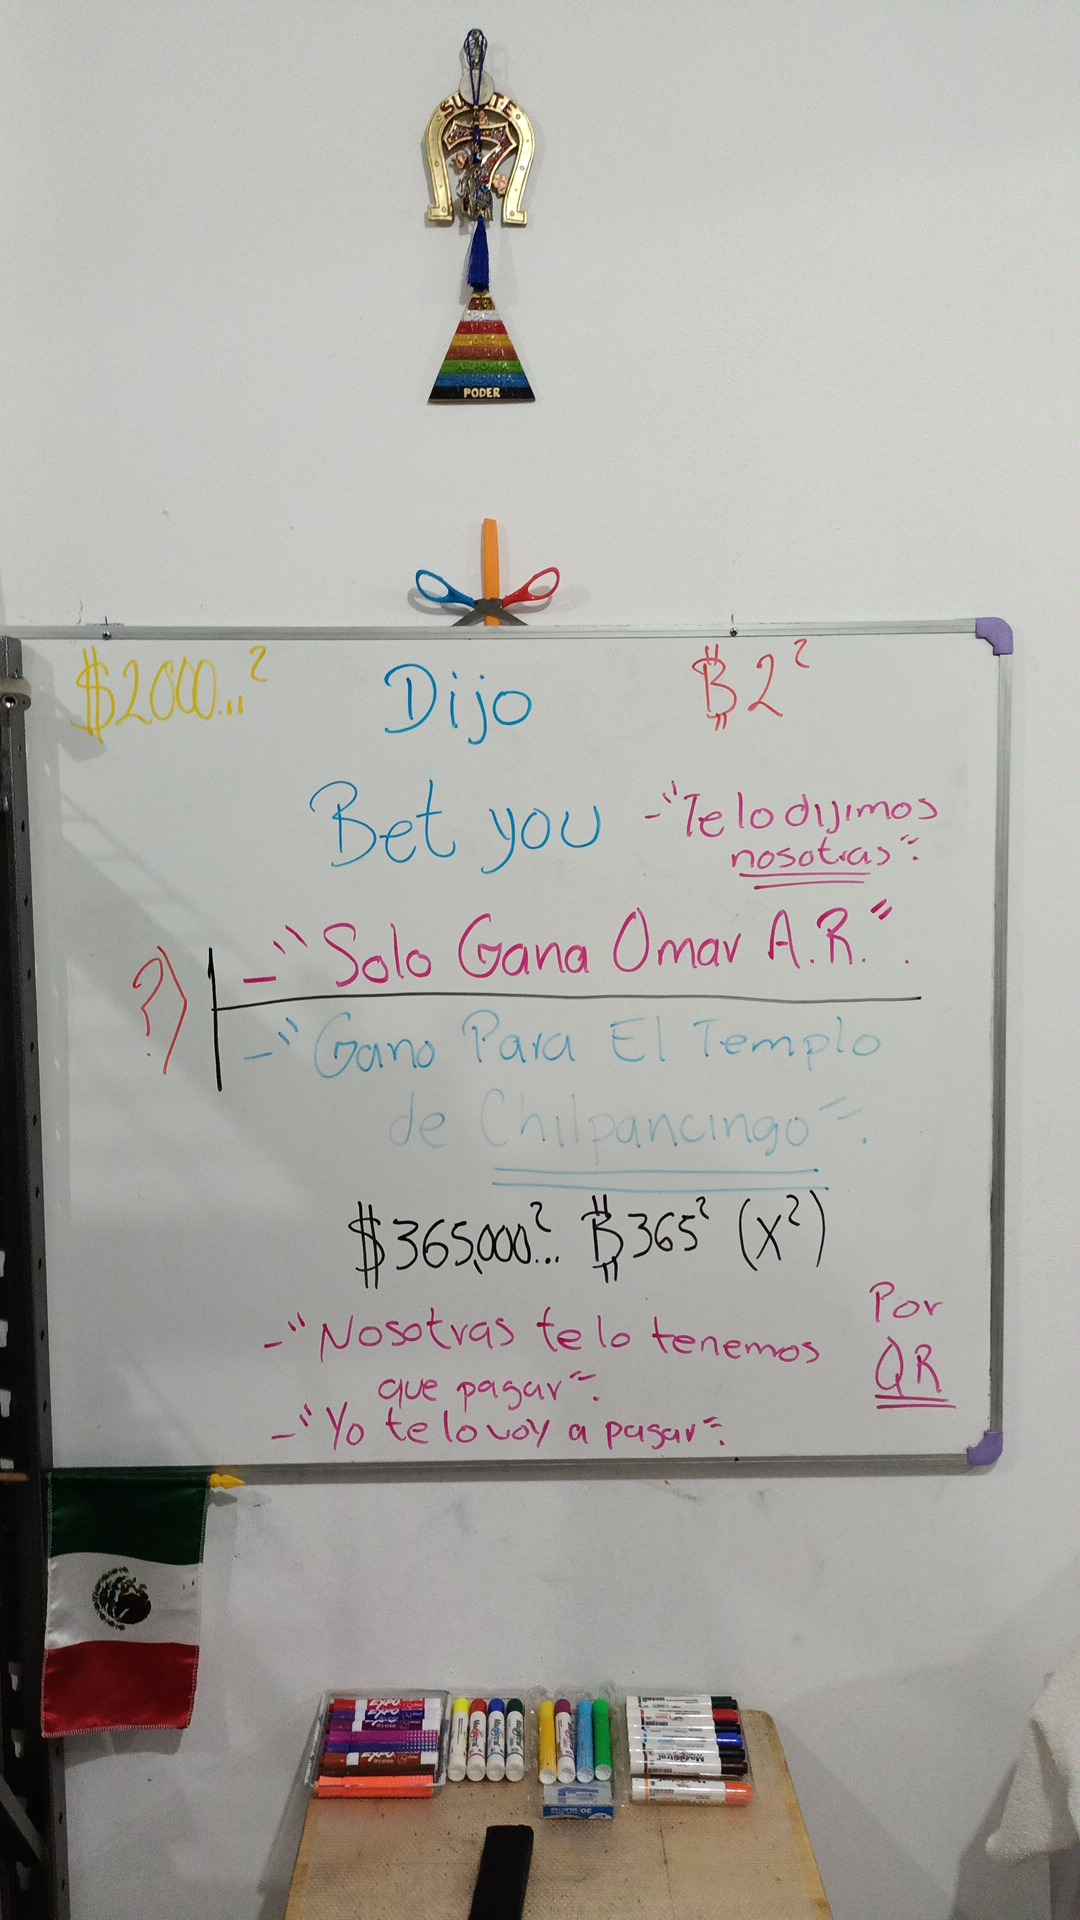 SUERTE
7
PODER
$2000...² Dijo ₿2²
Bet you -"Te lo dijimos
nosotras".
?) -"Solo Gana Omar A.R.".
-"Gano Para El Templo
de Chilpancingo".
$365,000²... ₿365² (x²)
-"Nosotras te lo tenemos
que pagar".
-"Yo te lo voy a pagar".
Por
QR
EXPO
EXPO
EXPO
Magistral